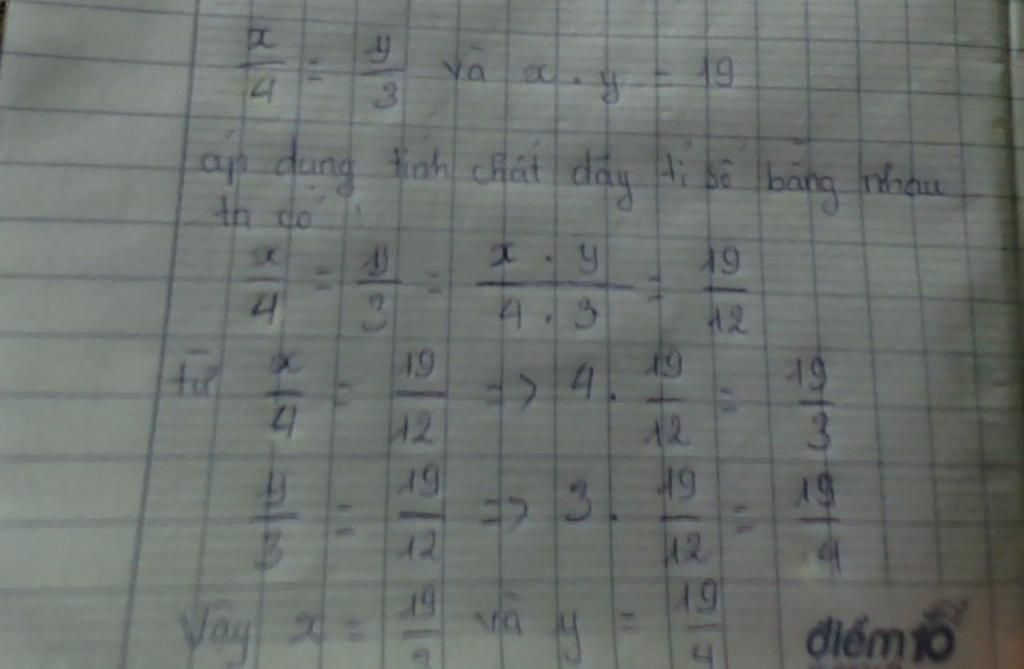 x/4 = y/3 và x . y = 19
áp dụng tính chất dãy tỉ số bằng nhau
ta có :
x/4 = y/3 = x . y / 4 . 3 = 19/12
Từ x/4 = 19/12 => 4 . 19/12 = 19/3
y/3 = 19/12 => 3 . 19/12 = 19/4
Vậy x = 19/3 và y = 19/4
điểm 10